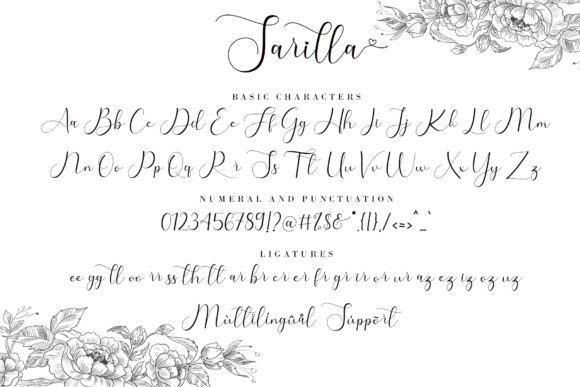 Sarilla
BASIC CHARACTERS
Aa Bb Cc Dd Ee Ff Gg Hh Ii Jj Kk Ll Mm
Nn Oo Pp Qq Rr Ss Tt Uu Vv Ww Xx Yy Zz
NUMERAL AND PUNCTUATION
0123456789!?@#%$&*.{|},/<=>^_`
LIGATURES
ee gg ll oo rr ss th tt ar br cr er fr gr ir or ur az ez iz oz uz
Mùltilingûål Sùppõrt